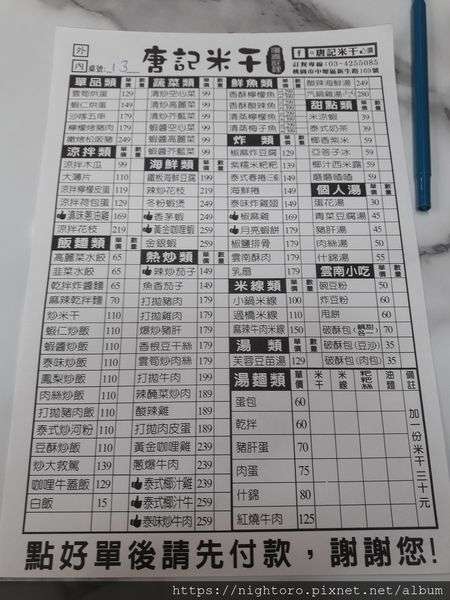 外
內
桌號: 13
唐記米干
滇緬料理
唐記米干
訂餐專線:03-4255085
桃園市中壢區新生路169號
單品類 單價 數量
雲筍烘蛋 129
蝦仁烘蛋 149
沙嗲五串 179
檸檬烤豬肉 179
249
涼拌類 單價 數量
涼拌木瓜 99
大薄片 110
涼拌檸檬皮蛋 119
涼拌荷包蛋 119
169
涼拌花枝 219
飯麵類 單價 數量
高麗菜水餃 65
韭菜水餃 65
乾拌炸醬麵 65
麻辣乾拌麵 70
炒米干 110
蝦仁炒飯 110
蝦醬炒飯 110
泰味炒飯 110
鳳梨炒飯 110
肉絲炒飯 110
打拋豬肉飯 110
泰式炒河粉 110
豆酥炒飯 110
炒大救駕 139
咖哩牛蓋飯 129
白飯 15
蔬菜類 單價 數量
清炒空心菜 99
清炒高麗菜 99
清炒芥藍菜 99
蝦醬空心菜 99
蝦醬高麗菜 99
蝦醬芥藍菜 99
海鮮類 單價 數量
鐵板海鮮豆腐 199
辣炒花枝 219
冬粉蝦煲 249
香茅蝦 249
黃金咖哩蝦 259
金銀蝦 259
熱炒類 單價 數量
辣炒茄子 149
魚香茄子 149
打拋豬肉 179
打拋雞肉 179
爆炒豬肝 179
香根豆干絲 179
雲筍炒肉絲 179
打拋牛肉 199
辣醃菜炒肉 199
酸辣雞 189
打拋肉皮蛋 189
黃金咖哩雞 239
蔥爆牛肉 239
泰式椰汁雞 239
泰式椰汁牛 259
泰味炒牛肉 259
鮮魚類 單價 數量
香酥檸檬魚
香酥酸辣魚
清蒸檸檬魚
清蒸梅子魚
炸類 單價 數量
椒麻炸豆腐 129
紫糯米粑粑 139
泰式春捲
海鮮捲 149
泰味炸雞翅
椒麻雞 169
月亮蝦餅 179
椒鹽排骨 179
雲南酥肉 179
乳扇 179
米線類 單價 數量
小鍋米線 100
過橋米線 110
麻辣牛肉米線 150
湯類 單價 數量
芙蓉豆苗湯 129
酸辣海鮮湯 249
280
甜點類 單價 數量
米涼蝦 39
泰式奶茶 39
椰香紫米 59
亞答子冰 59
椰汁西米露 59
磨磨喳喳 59
個人湯 單價 數量
蛋花湯 30
青菜豆腐湯 45
豬肝湯 50
肉絲湯 50
什錦湯 55
雲南小吃 單價 數量
豌豆粉 50
炸豆粉 60
甩餅 60
破酥包 150
破酥包(豆沙) 35
破酥包(肉包) 35
湯麵類 單價 米干 米線 粑粑絲 油麵 備註
蛋包 60
乾拌 60
豬肝蛋 70
肉蛋 75
什錦 80
紅燒牛肉 125
加一份米干三十元
點好單後請先付款,謝謝您!
https://nightoro.pixnet.net/album